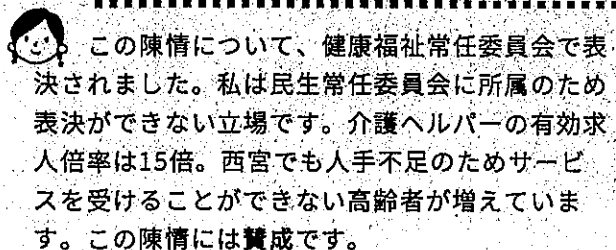 この陳情について、健康福祉常任委員会で表
決されました。私は民生常任委員会に所属のため
表決ができない立場です。介護ヘルパーの有効求
人倍率は15倍。西宮でも人手不足のためサービ
スを受けることができない高齢者が増えていま
す。この陳情には賛成です。